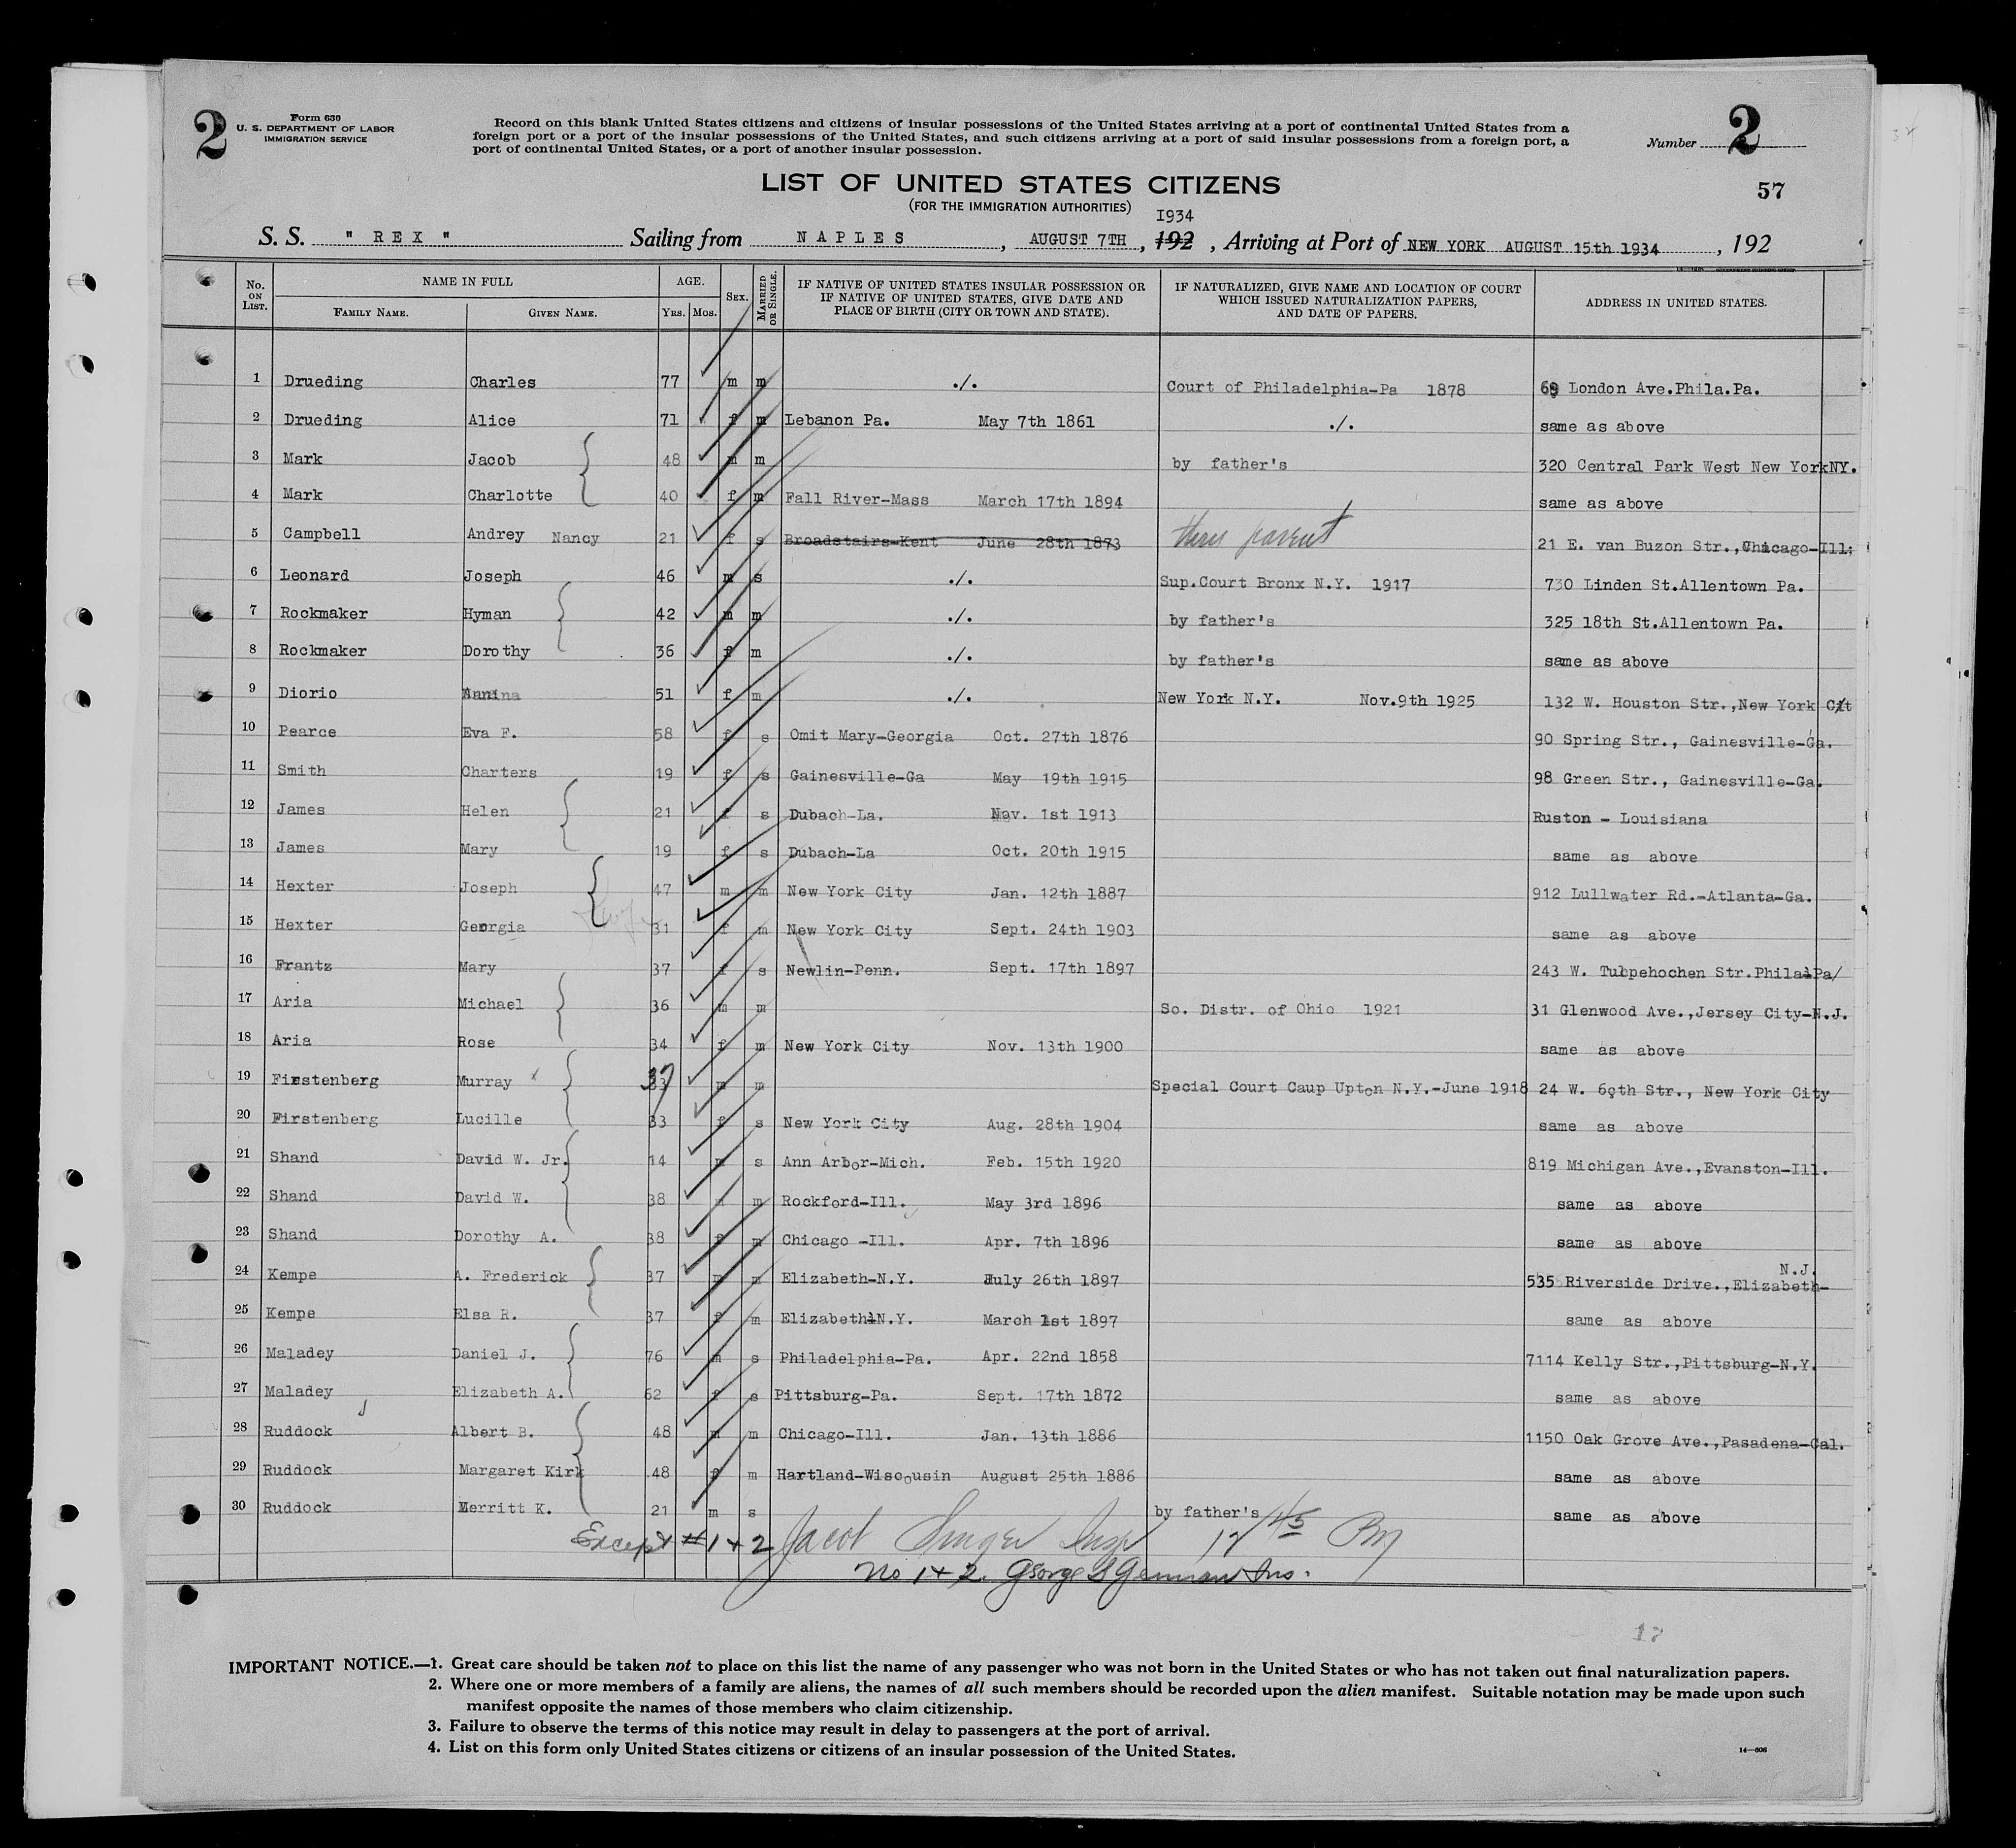 2
Form 630
U. S. DEPARTMENT OF LABOR
IMMIGRATION SERVICE
Record on this blank United States citizens and citizens of insular possessions of the United States arriving at a port of continental United States from a
foreign port or a port of the insular possessions of the United States, and such citizens arriving at a port of said insular possessions from a foreign port, a
port of continental United States, or a port of another insular possession.
Number 2
57
LIST OF UNITED STATES CITIZENS
(FOR THE IMMIGRATION AUTHORITIES)
1934
S. S. " REX " Sailing from NAPLES , AUGUST 7TH , 192 , Arriving at Port of NEW YORK AUGUST 15th 1934 , 192
No. ON LIST. NAME IN FULL AGE. SEX. MARRIED OR SINGLE. IF NATIVE OF UNITED STATES INSULAR POSSESSION OR IF NATIVE OF UNITED STATES, GIVE DATE AND PLACE OF BIRTH (CITY OR TOWN AND STATE). IF NATURALIZED, GIVE NAME AND LOCATION OF COURT WHICH ISSUED NATURALIZATION PAPERS, AND DATE OF PAPERS. ADDRESS IN UNITED STATES.
FAMILY NAME. GIVEN NAME. YRS. MOS.
1 Drueding Charles 77 m m ./. Court of Philadelphia-Pa 1878 69 London Ave.Phila.Pa.
2 Drueding Alice 71 f m Lebanon Pa. May 7th 1861 ./. same as above
3 Mark Jacob 48 m m by father's 320 Central Park West New York NY.
4 Mark Charlotte 40 f m Fall River-Mass March 17th 1894 same as above
5 Campbell Andrey Nancy 21 f s Broadstairs-Kent June 28th 1873 thru parent 21 E. van Buzon Str.,Chicago-Ill;
6 Leonard Joseph 46 m s ./. Sup.Court Bronx N.Y. 1917 730 Linden St.Allentown Pa.
7 Rockmaker Hyman 42 m m ./. by father's 325 18th St.Allentown Pa.
8 Rockmaker Dorothy 36 f m ./. by father's same as above
9 Diorio Annina 51 f m ./. New York N.Y. Nov.9th 1925 132 W. Houston Str.,New York Cit
10 Pearce Eva F. 58 f s Omit Mary-Georgia Oct. 27th 1876 90 Spring Str., Gainesville-Ga.
11 Smith Charters 19 f s Gainesville-Ga May 19th 1915 98 Green Str., Gainesville-Ga.
12 James Helen 21 f s Dubach-La. Nov. 1st 1913 Ruston - Louisiana
13 James Mary 19 f s Dubach-La Oct. 20th 1915 same as above
14 Hexter Joseph 47 m m New York City Jan. 12th 1887 912 Lullwater Rd.-Atlanta-Ga.
15 Hexter Georgia 31 f m New York City Sept. 24th 1903 same as above
16 Frantz Mary 37 f s Newlin-Penn. Sept. 17th 1897 243 W. Tulpehochen Str.Phila-Pa/
17 Aria Michael 36 m m So. Distr. of Ohio 1921 31 Glenwood Ave.,Jersey City-N.J.
18 Aria Rose 34 f m New York City Nov. 13th 1900 same as above
19 Firstenberg Murray 37 m m Special Court Caup Upton N.Y.-June 1918 24 W. 69th Str., New York City
20 Firstenberg Lucille 33 f s New York City Aug. 28th 1904 same as above
21 Shand David W. Jr. 14 m s Ann Arbor-Mich. Feb. 15th 1920 819 Michigan Ave.,Evanston-Ill.
22 Shand David W. 38 m m Rockford-Ill. May 3rd 1896 same as above
23 Shand Dorothy A. 38 f m Chicago -Ill. Apr. 7th 1896 same as above
24 Kempe A. Frederick 37 m m Elizabeth-N.Y. July 26th 1897 535 Riverside Drive.,Elizabeth- N.J.
25 Kempe Elsa R. 37 f m Elizabeth-N.Y. March 1st 1897 same as above
26 Maladey Daniel J. 76 m s Philadelphia-Pa. Apr. 22nd 1858 7114 Kelly Str.,Pittsburg-N.Y.
27 Maladey Elizabeth A. 62 f s Pittsburg-Pa. Sept. 17th 1872 same as above
28 Ruddock Albert B. 48 m m Chicago-Ill. Jan. 13th 1886 1150 Oak Grove Ave.,Pasadena-Cal.
29 Ruddock Margaret Kirk 48 f m Hartland-Wiscousin August 25th 1886 same as above
30 Ruddock Merritt K. 21 m s by father's same as above
Except #1+2 Jacob Singer Insp 12 45 PM
No 1+2. George S German Ins.
12
IMPORTANT NOTICE.—1. Great care should be taken not to place on this list the name of any passenger who was not born in the United States or who has not taken out final naturalization papers.
2. Where one or more members of a family are aliens, the names of all such members should be recorded upon the alien manifest. Suitable notation may be made upon such
manifest opposite the names of those members who claim citizenship.
3. Failure to observe the terms of this notice may result in delay to passengers at the port of arrival.
4. List on this form only United States citizens or citizens of an insular possession of the United States.
14—608